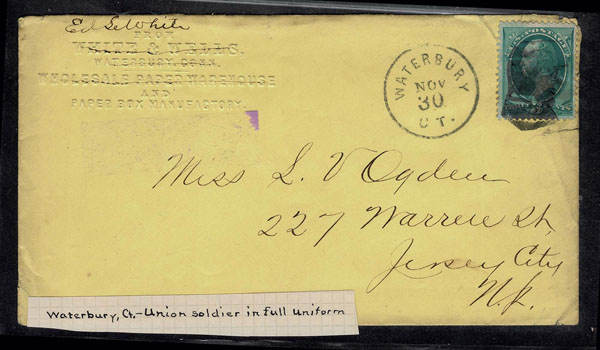 Ed L. White
FROM
WHITE & WELLS.
WATERBURY, CONN.
WHOLESALE PAPER WAREHOUSE
AND
PAPER BOX MANUFACTORY.
WATERBURY
NOV
30
CT.
Miss L. V Ogden
227 Warren St,
Jersey City
N.J.
Waterbury, Ct.-Union soldier in full uniform